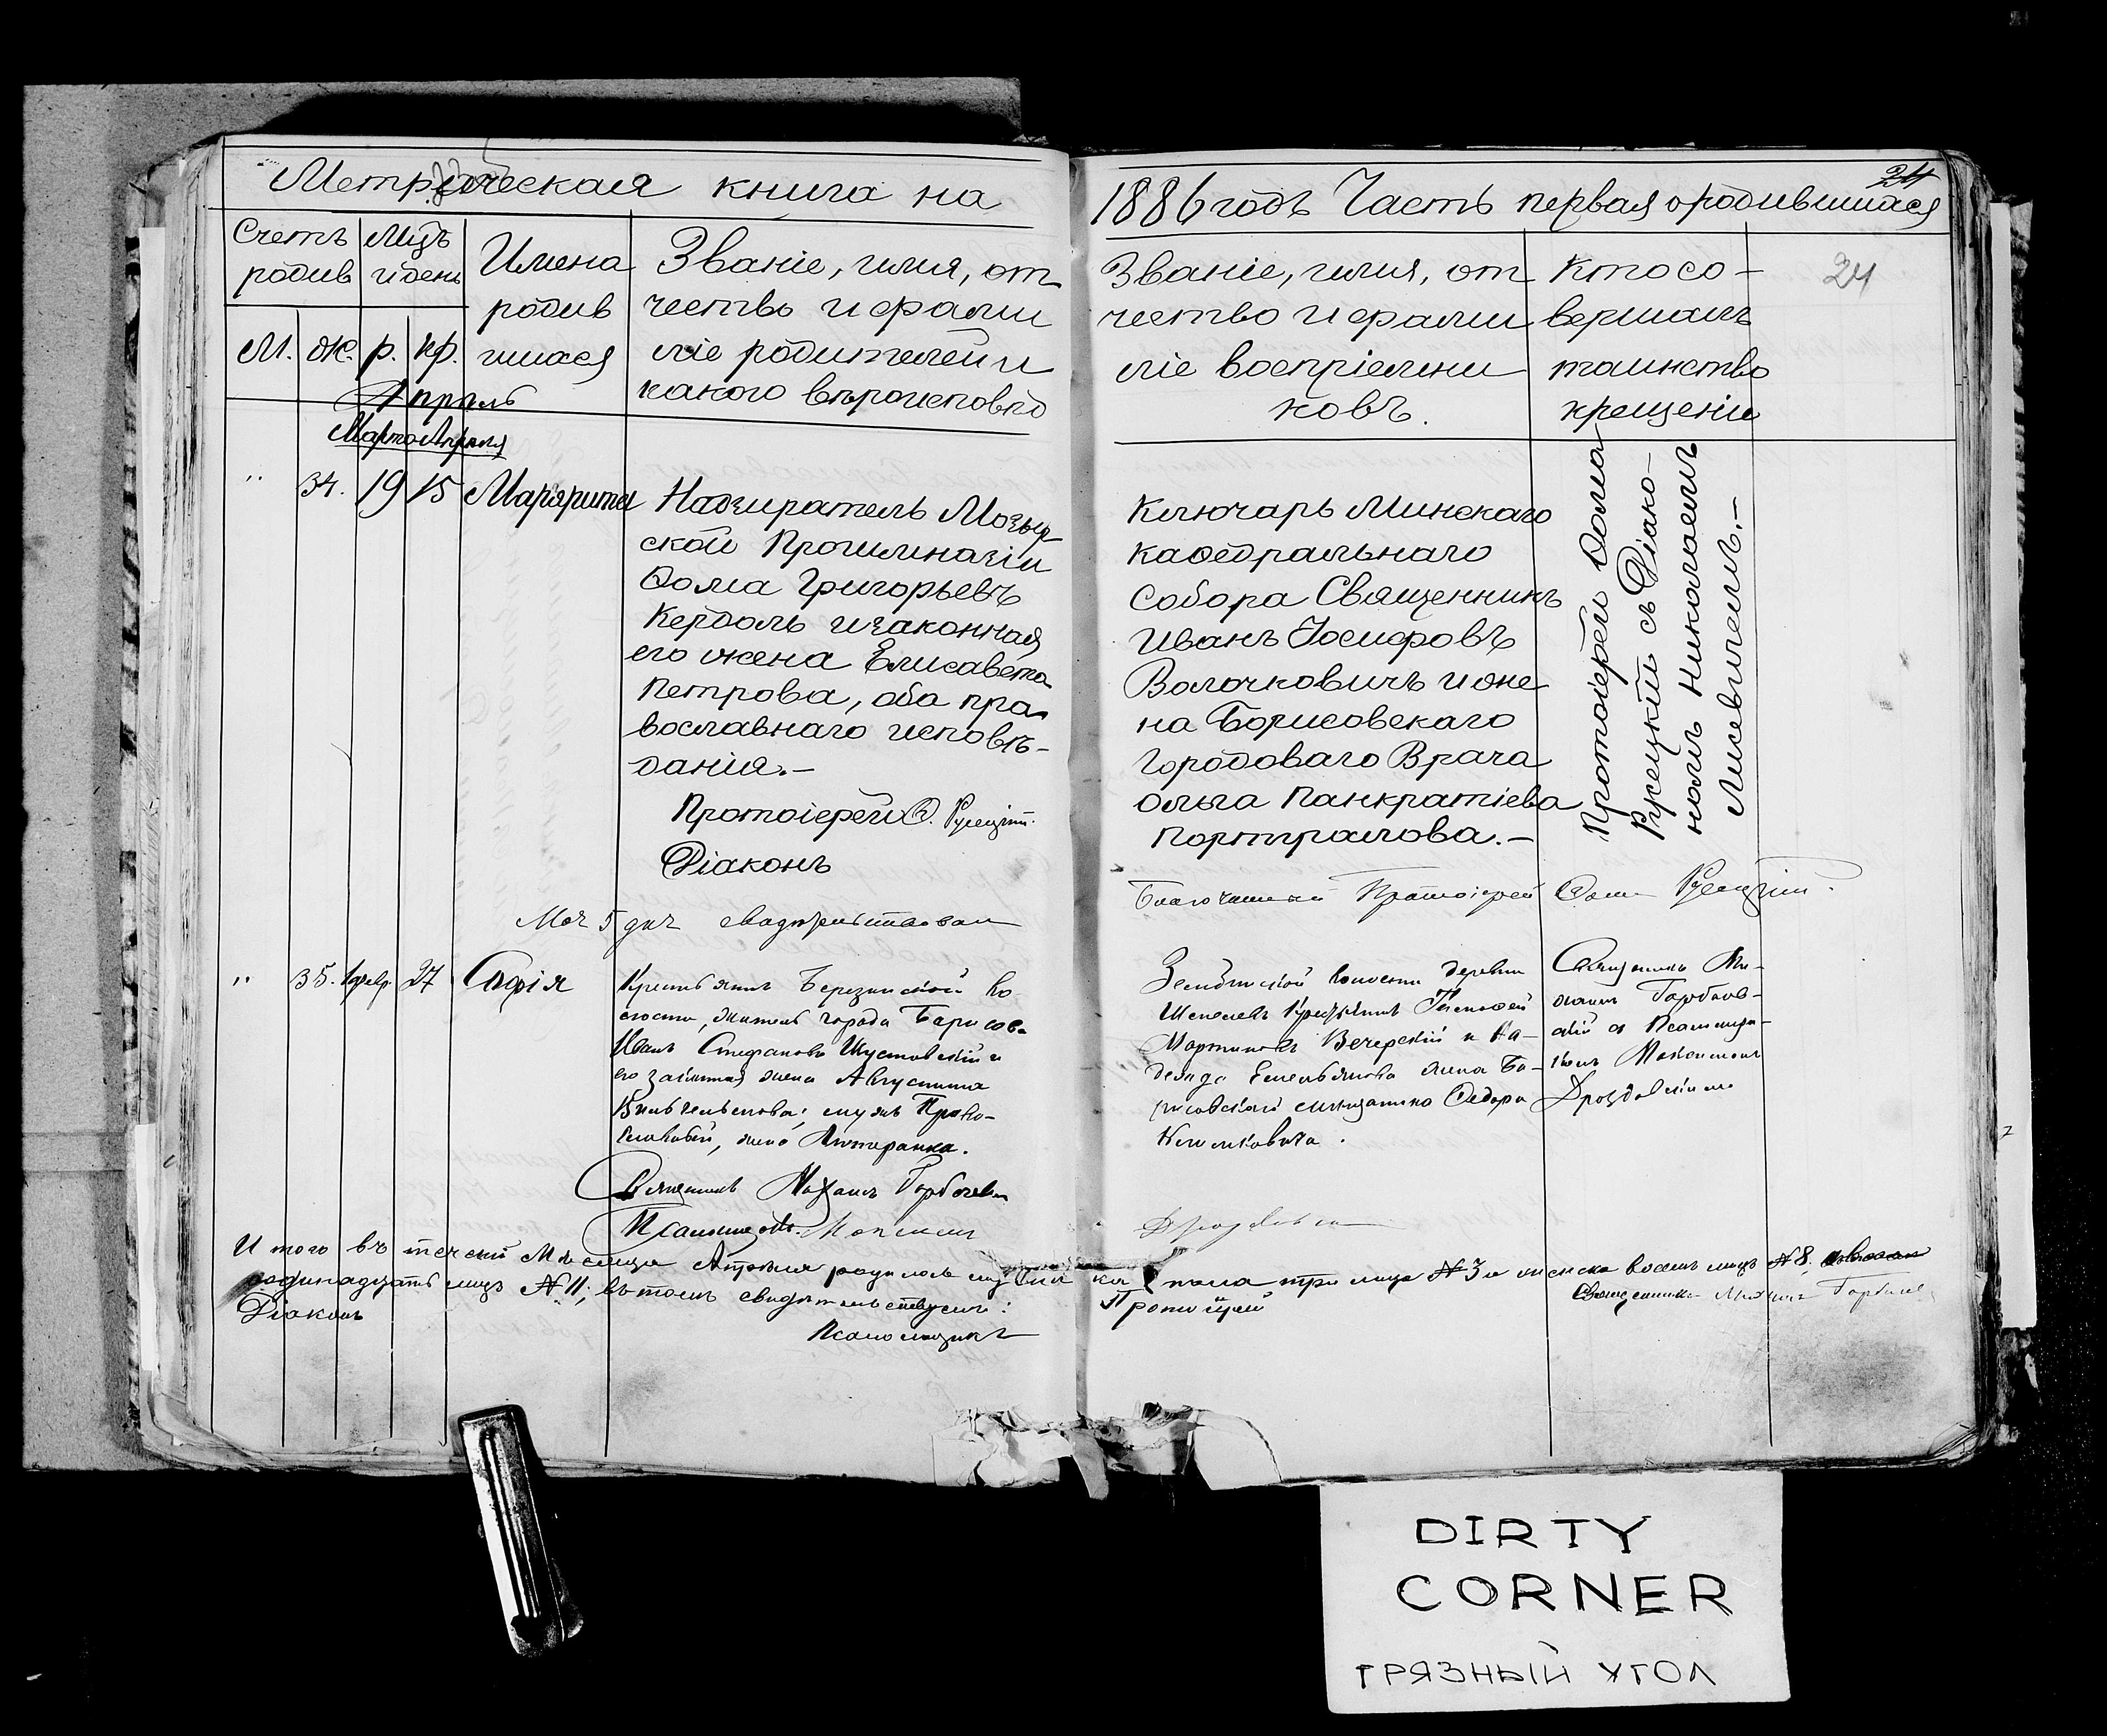 Метрическая книга на
1886 годъ Часть первая о родившихся
24
24
Счетъ родив
М. Ж.
Мцъ и день
р. кр.
Имена
родив
шихся
Званіе, имя, от
чество и фами
ліе родителей и
какого вѣроисповѣд
Званіе, имя, от
чество и фами
ліе воспріемни
ковъ.
Кто со-
вершалъ
таинство
крещенія
Апрѣль
Марта Апрѣля
" 34. 19 15 Маргарита
Надзиратель Мозыр
ской Прогимназіи
Ѳома Григорьевъ
Кердоль и законная
его жена Елисавета
Петрова, оба пра
вославнаго исповѣ-
данія.-
Протоіерей Ѳ. Русецкій.
Діаконъ
Ключарь Минскаго
каѳедральнаго
собора Священникъ
Иванъ Іосифовъ
Волочковичъ и же
на Борисовскаго
Городоваго Врача
Ольга Панкратіева
Португалова.-
Протоіерей Ѳома
Русецкій съ Діако-
номъ Николаемъ
Лисевичемъ.-
5 дня свидѣтельствовалъ
Благочинный Протоіерей Ѳома Русецкій.
" 35. 27 Софія
Крестьянинъ Березинской во
лости, житель города Борисова
Иванъ Стефановъ Шустовскій и
его законная жена Августина
мужъ Право-
славный, жена Лютеранка.
Священникъ Михаилъ Горбачев
Псаломщ. Максимъ
волости деревни
крестьянинъ Тимофей
Мартиновъ Вечерскій и На-
дежда Емельянова жена Бо-
рисовскаго мѣщанина Ѳедора
Климковича.
Священникъ Ми-
хаилъ Горбачев-
скій съ Псаломщи-
комъ Максимомъ
Дроздовскимъ
Дроздовскій
Итого въ теченіи Мѣсяца Апрѣля родилось мужескаго пола три лица № 3 и женска восемь лицъ № 8,
одинадцать лицъ № 11; въ томъ свидѣтельствуемъ: Протоіерей Священникъ Михаилъ
Діаконъ
Псаломщикъ
DIRTY
CORNER
ГРЯЗНЫЙ УГОЛ